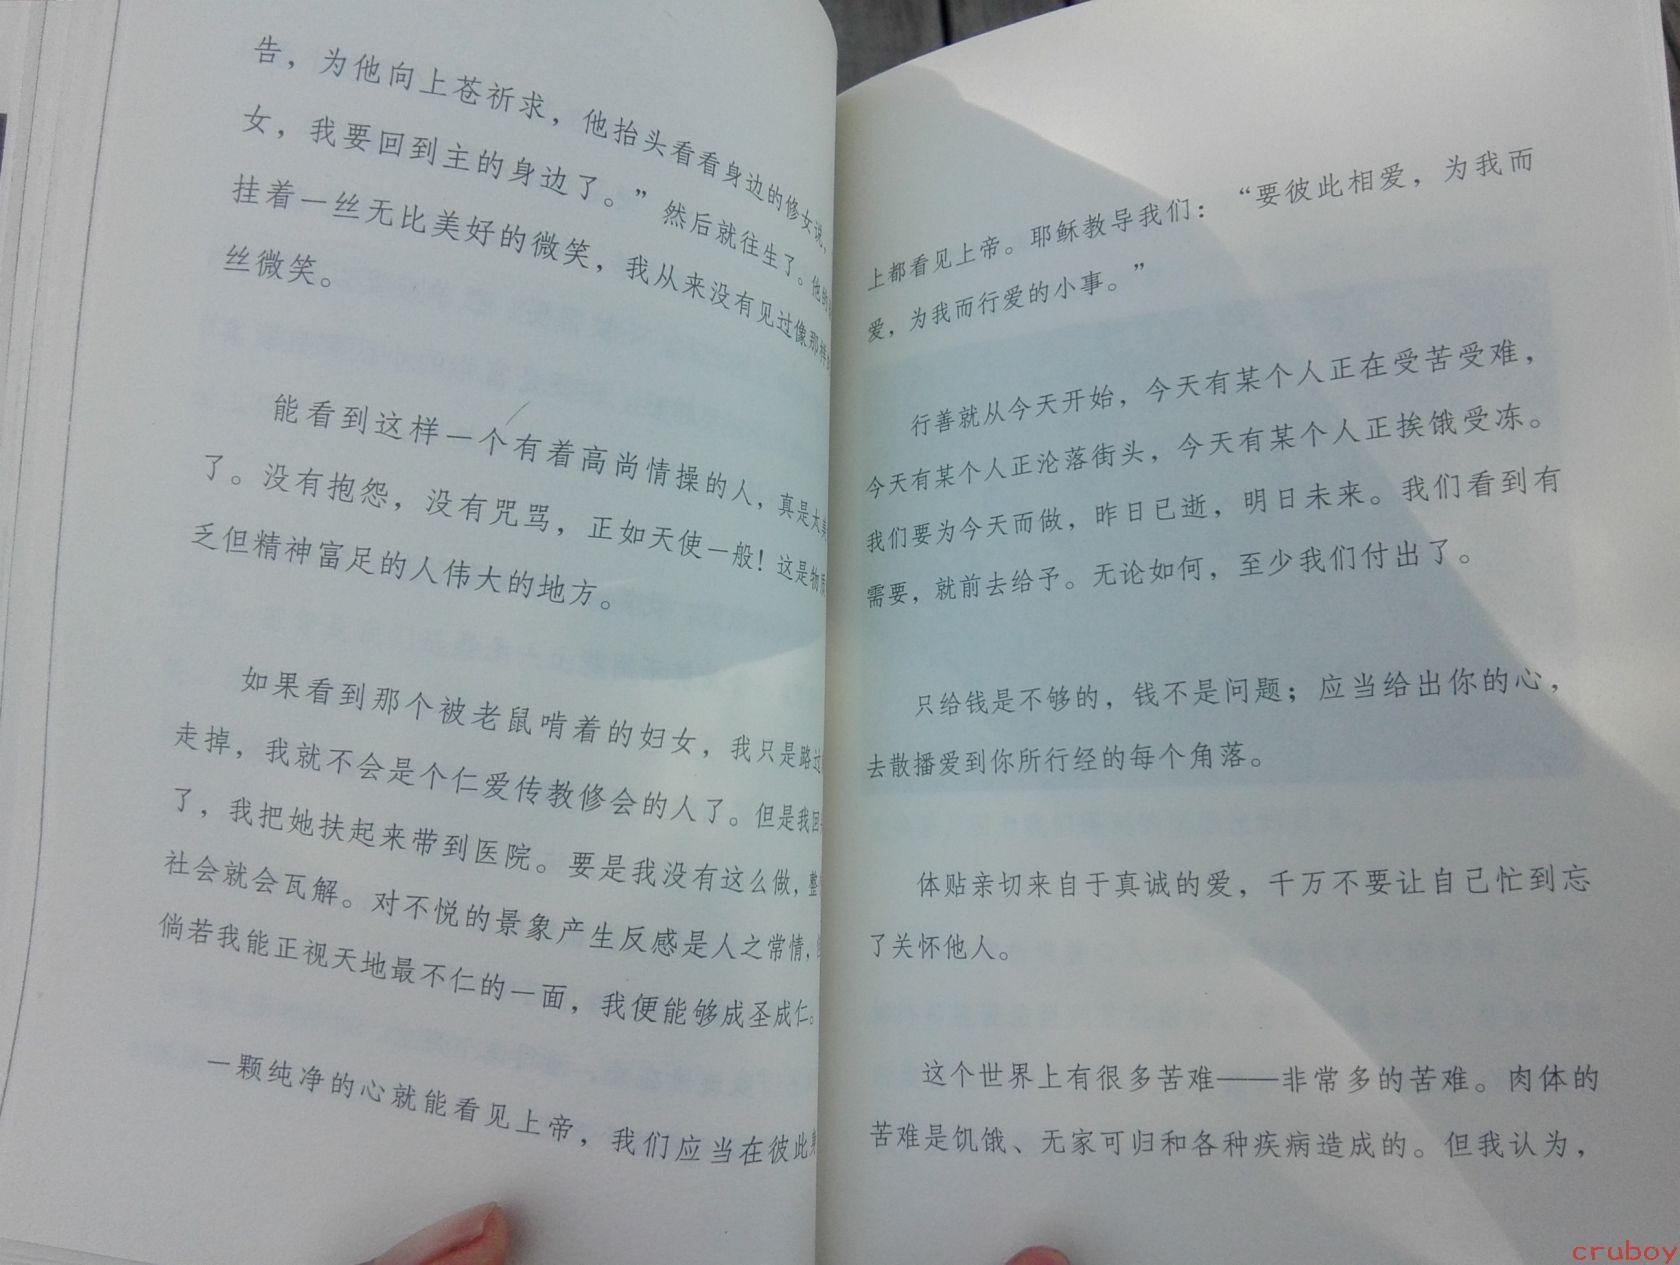 告，为他向上苍祈求，他抬头看看身边的修女说，
女，我要回到主的身边了。”然后就往生了。他的
挂着一丝无比美好的微笑，我从来没有见过像那样
丝微笑。
能看到这样一个有着高尚情操的人，真是太
了。没有抱怨，没有咒骂，正如天使一般！这是物
乏但精神富足的人伟大的地方。
如果看到那个被老鼠啃着的妇女，我只是路过
走掉，我就不会是个仁爱传教修会的人了。但是我回
了，我把她扶起来带到医院。要是我没有这么做，整
社会就会瓦解。对不悦的景象产生反感是人之常情，
倘若我能正视天地最不仁的一面，我便能够成圣成仁。
一颗纯净的心就能看见上帝，我们应当在彼此
上都看见上帝。耶稣教导我们：“要彼此相爱，为我而
爱，为我而行爱的小事。”
行善就从今天开始，今天有某个人正在受苦受难，
今天有某个人正沦落街头，今天有某个人正挨饿受冻。
我们要为今天而做，昨日已逝，明日未来。我们看到有
需要，就前去给予。无论如何，至少我们付出了。
只给钱是不够的，钱不是问题；应当给出你的心，
去散播爱到你所行经的每个角落。
体贴亲切来自于真诚的爱，千万不要让自己忙到忘
了关怀他人。
这个世界上有很多苦难——非常多的苦难。肉体的
苦难是饥饿、无家可归和各种疾病造成的。但我认为，
cruboy